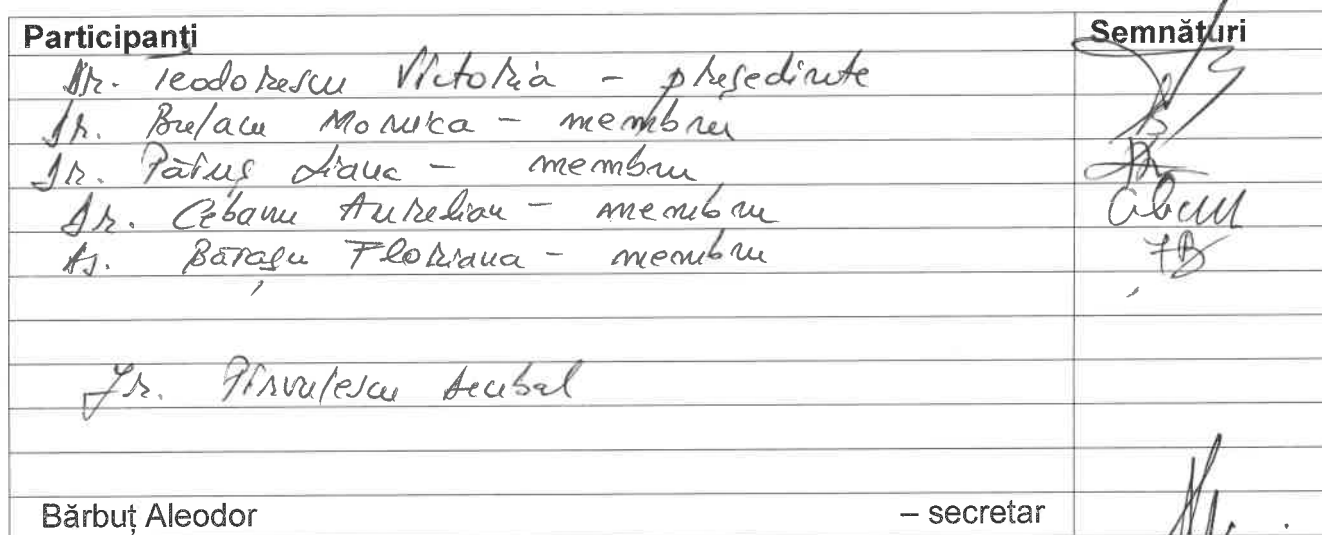 Participanți Semnături
Dr. Teodorescu Victoria – președinte
Dr. Monica – membru
Dr. Pătruș Liana – membru
Dr. Cebanu Aurelian – membru
As. Bărașu Floriana – membru FB
Dr. Pîrvulescu Decebal
Bărbuț Aleodor – secretar